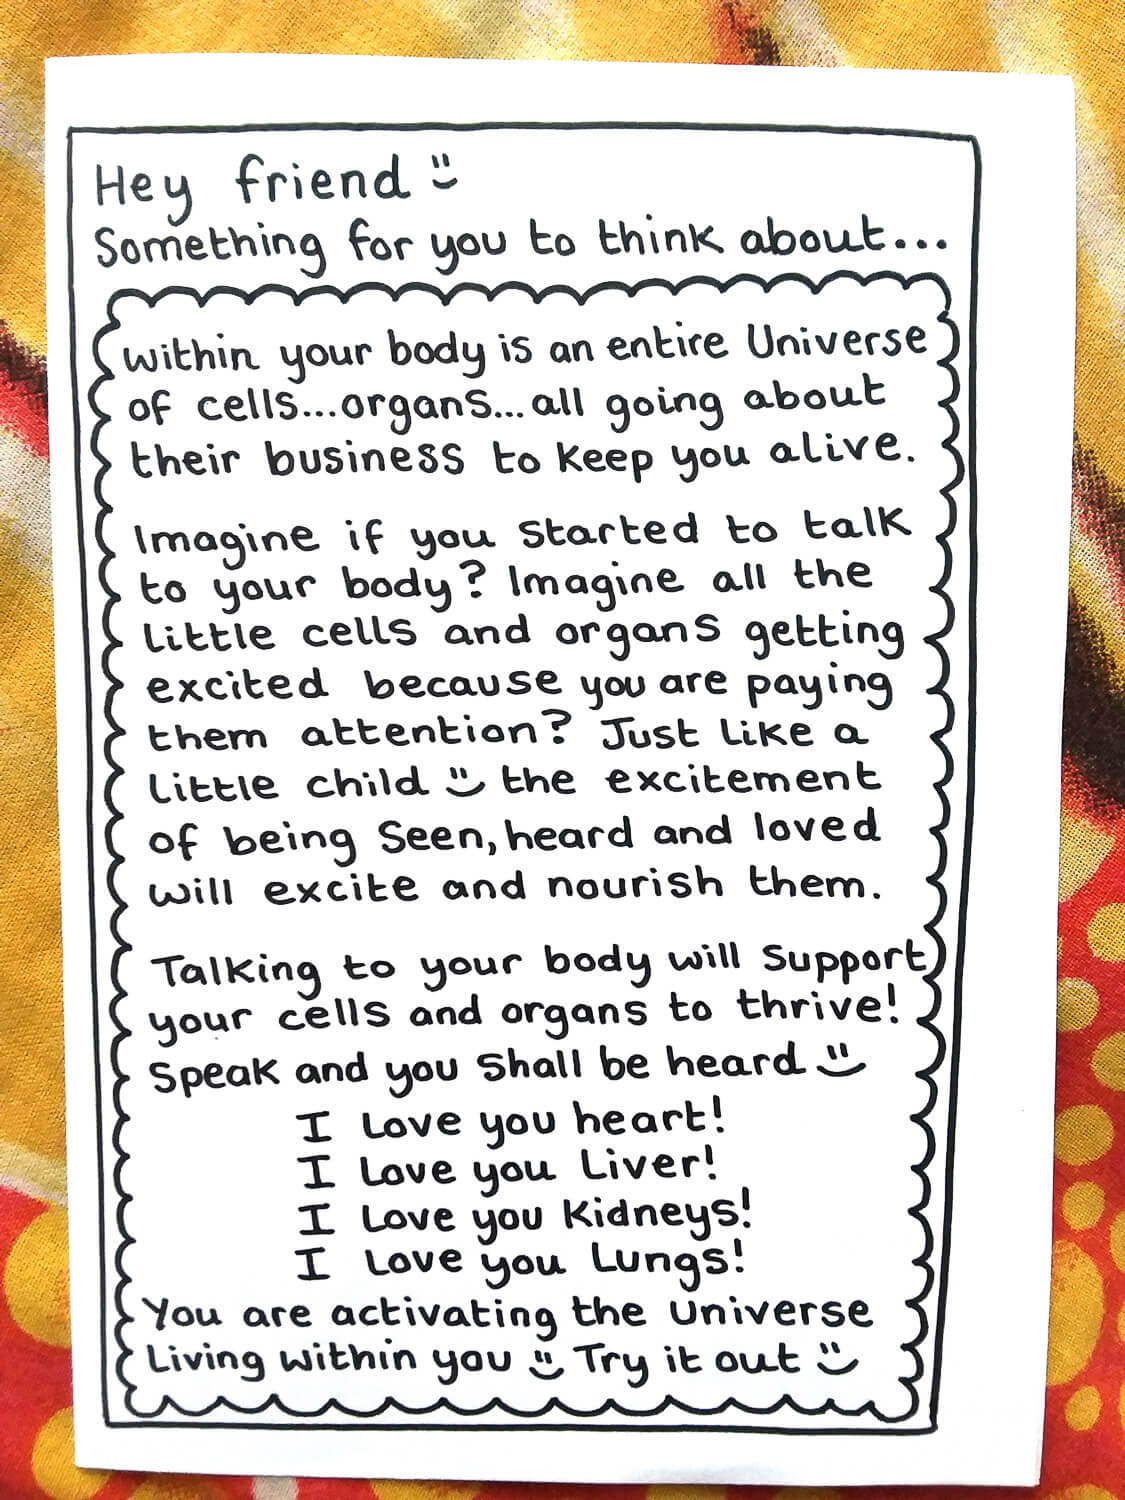 Hey friend
Something for you to think about...
within your body is an entire Universe
of cells...organs...all going about
their business to keep you alive.
Imagine if you started to talk
to your body? Imagine all the
little cells and organs getting
excited because you are paying
them attention? Just like a
little child the excitement
of being seen, heard and loved
will excite and nourish them.
Talking to your body will support
your cells and organs to thrive!
Speak and you shall be heard
I love you heart!
I love you Liver!
I love you Kidneys!
I love you Lungs!
You are activating the universe
Living within you Try it out